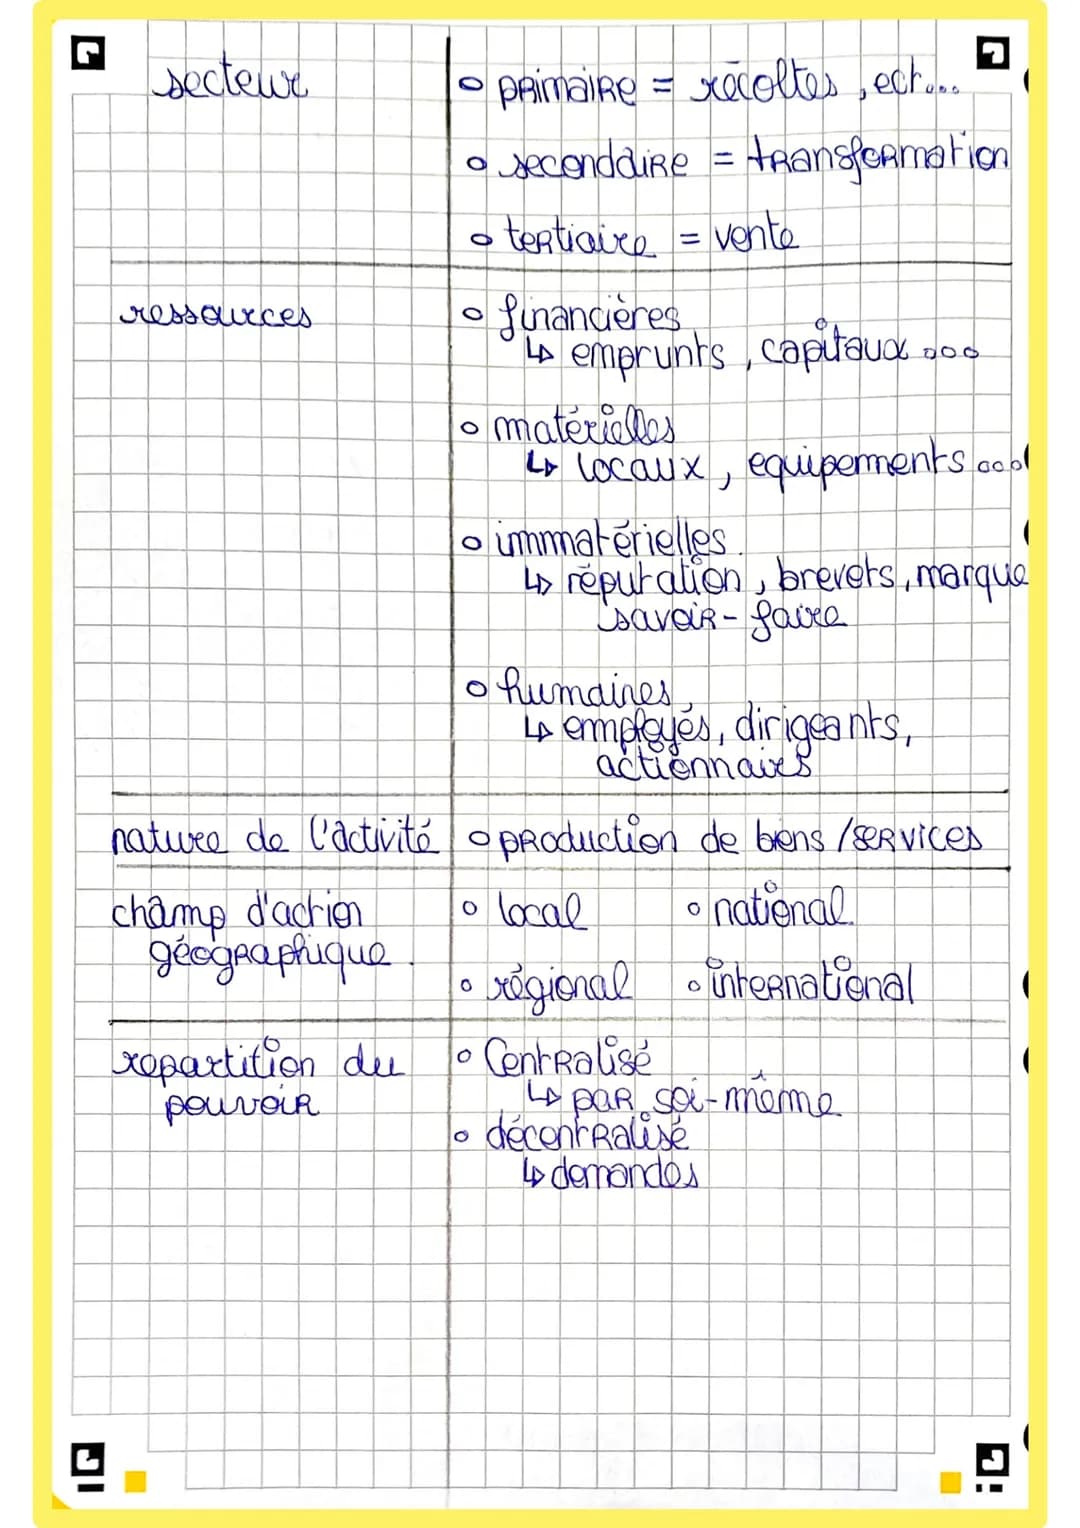 secteur
o primaire = récoltes, ect...
o seconddaire = transformation
o tertiaire = vente
ressources
o financières
↳ emprunts, capitaux ...
o matérielles
↳ locaux, equipements ...
o immatérielles.
↳ réputation, brevets, marque
savoir-faire
o humaines
↳ employés, dirigeants,
actionnaires
nature de l'activité
o production de biens /services
champ d'action
géographique.
o local
o national.
o régional
o international
repartition du
pouvoir
o Centralisé
↳ par soi-même
o décentralisé
↳ demandes